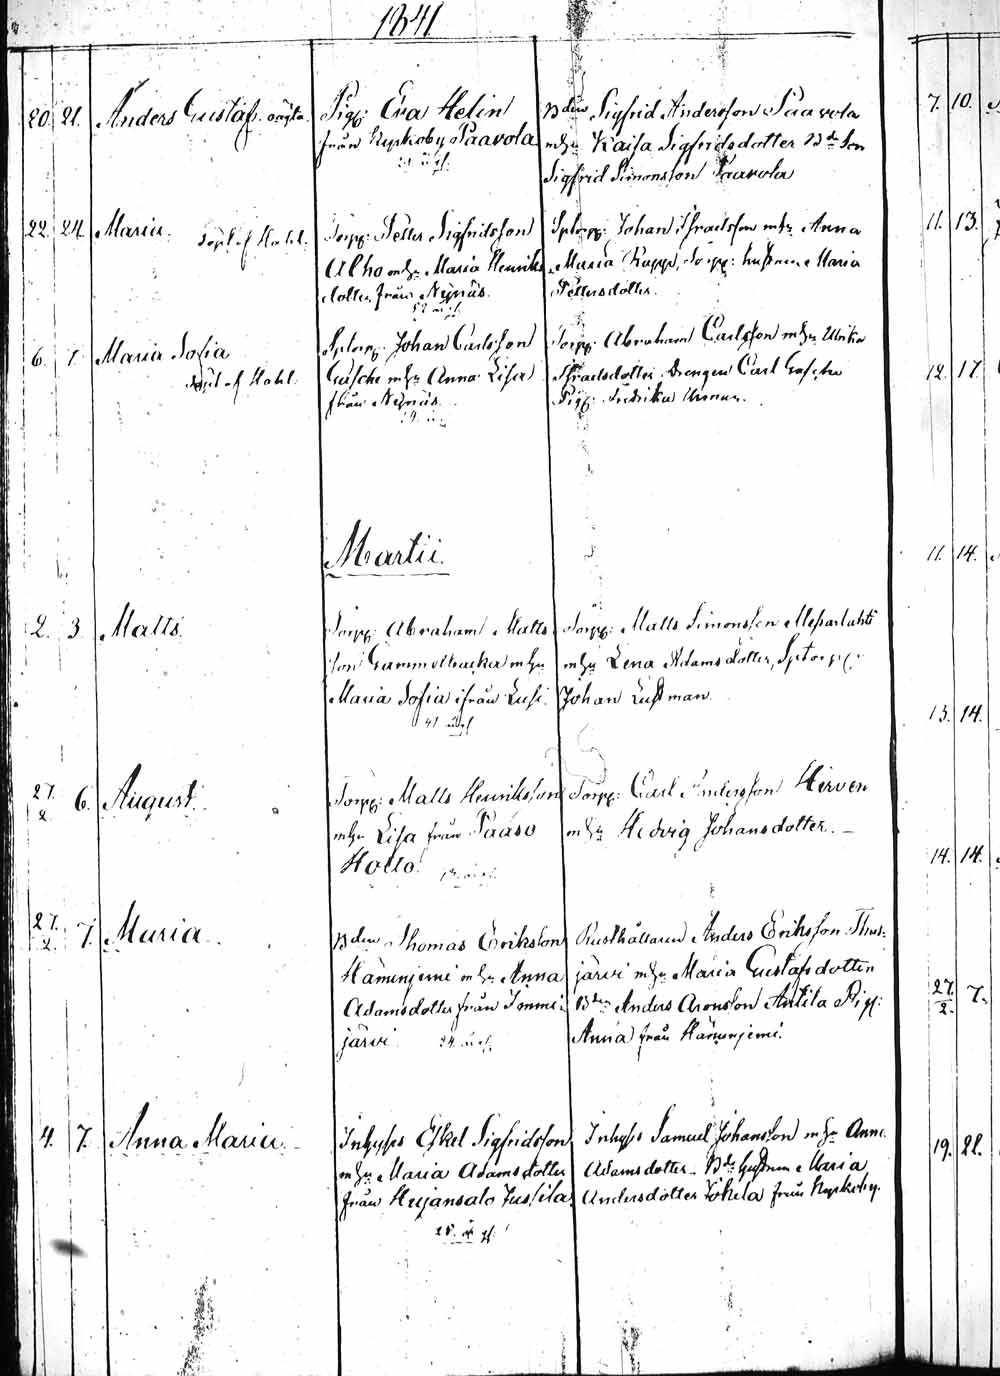 1841
20. 21. Anders Gustaf. oägta.
Pig: Eva Helin
från Kyrkoby Paavola
Bden Sigfrid Andersson Paavola
mhu Kaisa Sigfridsdotter Bde Son
Sigfrid Simonsson Paavola
22. 24. Maria.
Torp: Petter Sigfridsson
Alho mhu Maria Henriks
dotter från Nynäs.
Sptorp: Johan Israelsson mhu Anna
Maria Kapp, Torp: hustrun Maria
Pettersdotter.
6. 7. Maria Sofia
Sptorp: Johan Carlsson
Gäsche mhu Anna Lisa
från Nynäs.
Torp: Abraham Carlsson mhu Ulrika
Israelsdotter Drengen Carl Gäsche
Pig: Fredrika
Martii.
2. 3 Matts.
Torp: Abraham Matts
son Gammelbacka mhu
Maria Sofia ifrån Lusi.
41 år gl
Torp: Matts Simonsson Messarlahti
mhu Lena Adamsdotter, Sptorp:
Johan Lustman.
27. 2 6. August.
Torp: Matts Henriksson
mhu Lisa från Paaso
Hollo.
Torp: Carl Andersson Hirven
mhu Hedvig Johansdotter. —
27. 2. 7. Maria.
Bden Thomas Eriksson
Hämenjemi mhu Anna
Adamsdotter från Immi-
järvi.
34 år gl.
Rusthållaren Anders Eriksson Thus-
järvi mhu Maria Gustafsdotter
Bden Anders Aronsson Antila Pig:
Anna från Hämenjemi.
4. 7. Anna Maria.
Inhyses Eskel Sigfridsson
mhu Maria Adamsdotter
från Hejansalo Jussila.
28 år gl.
Inhyses Samuel Johansson mhu Anna
Adamsdotter. Bde hustrun Maria
Andersdotter Jokela från Kyrkoby.
7. 10.
11. 13.
12. 17.
11. 14.
13. 14.
14. 14.
27. 2. 7.
19. 22.